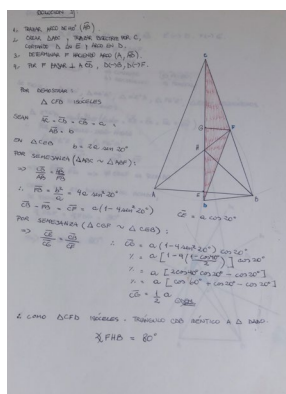 SOLUCIÓN 3)
1.- TRAZAR, ARCO DE 40° (AB)
2.- DESDE DATO, TRAZAR BISECTRIZ POR C,
CORTANDO EN E Y ARCO EN D.
3.- DETERMINAR P HACIENDO ARCO (A, AB).
4.- POR P BAJAR ⊥ A CD,
POR DEMOSTRAR:
△ CFD ISÓCELES
SEAN AC = CD = CB = a ;
AB = b
EN △ CEB b = 2a sin 20°
POR SEMEJANZA (△ABC ~ △ABP):
⇒ CB/AB = AB/PB
∴ PB = b²/a = 4a sin² 20°
CB - PB = CP = a (1 - 4 sin² 20°)
POR SEMEJANZA (△ CGP ~ △ CEB):
⇒ CG/CE = CP/CB
CE = a cos 20°
∴ CG = a (1 - 4 sin² 20°) cos 20°
〃 = a [1 - 4 (1 - cos 40°/2)] cos 20°
〃 = a [2 cos 40° cos 20° - cos 20°]
〃 = a [cos 60° + cos 20° - cos 20°]
CG = 1/2 a
& COMO △CFD ISÓCELES - TRIÁNGULO CDB IDÉNTICO A △ DADO.
∡ FHB = 80°
C
G
F
P
H
A
E
B
D